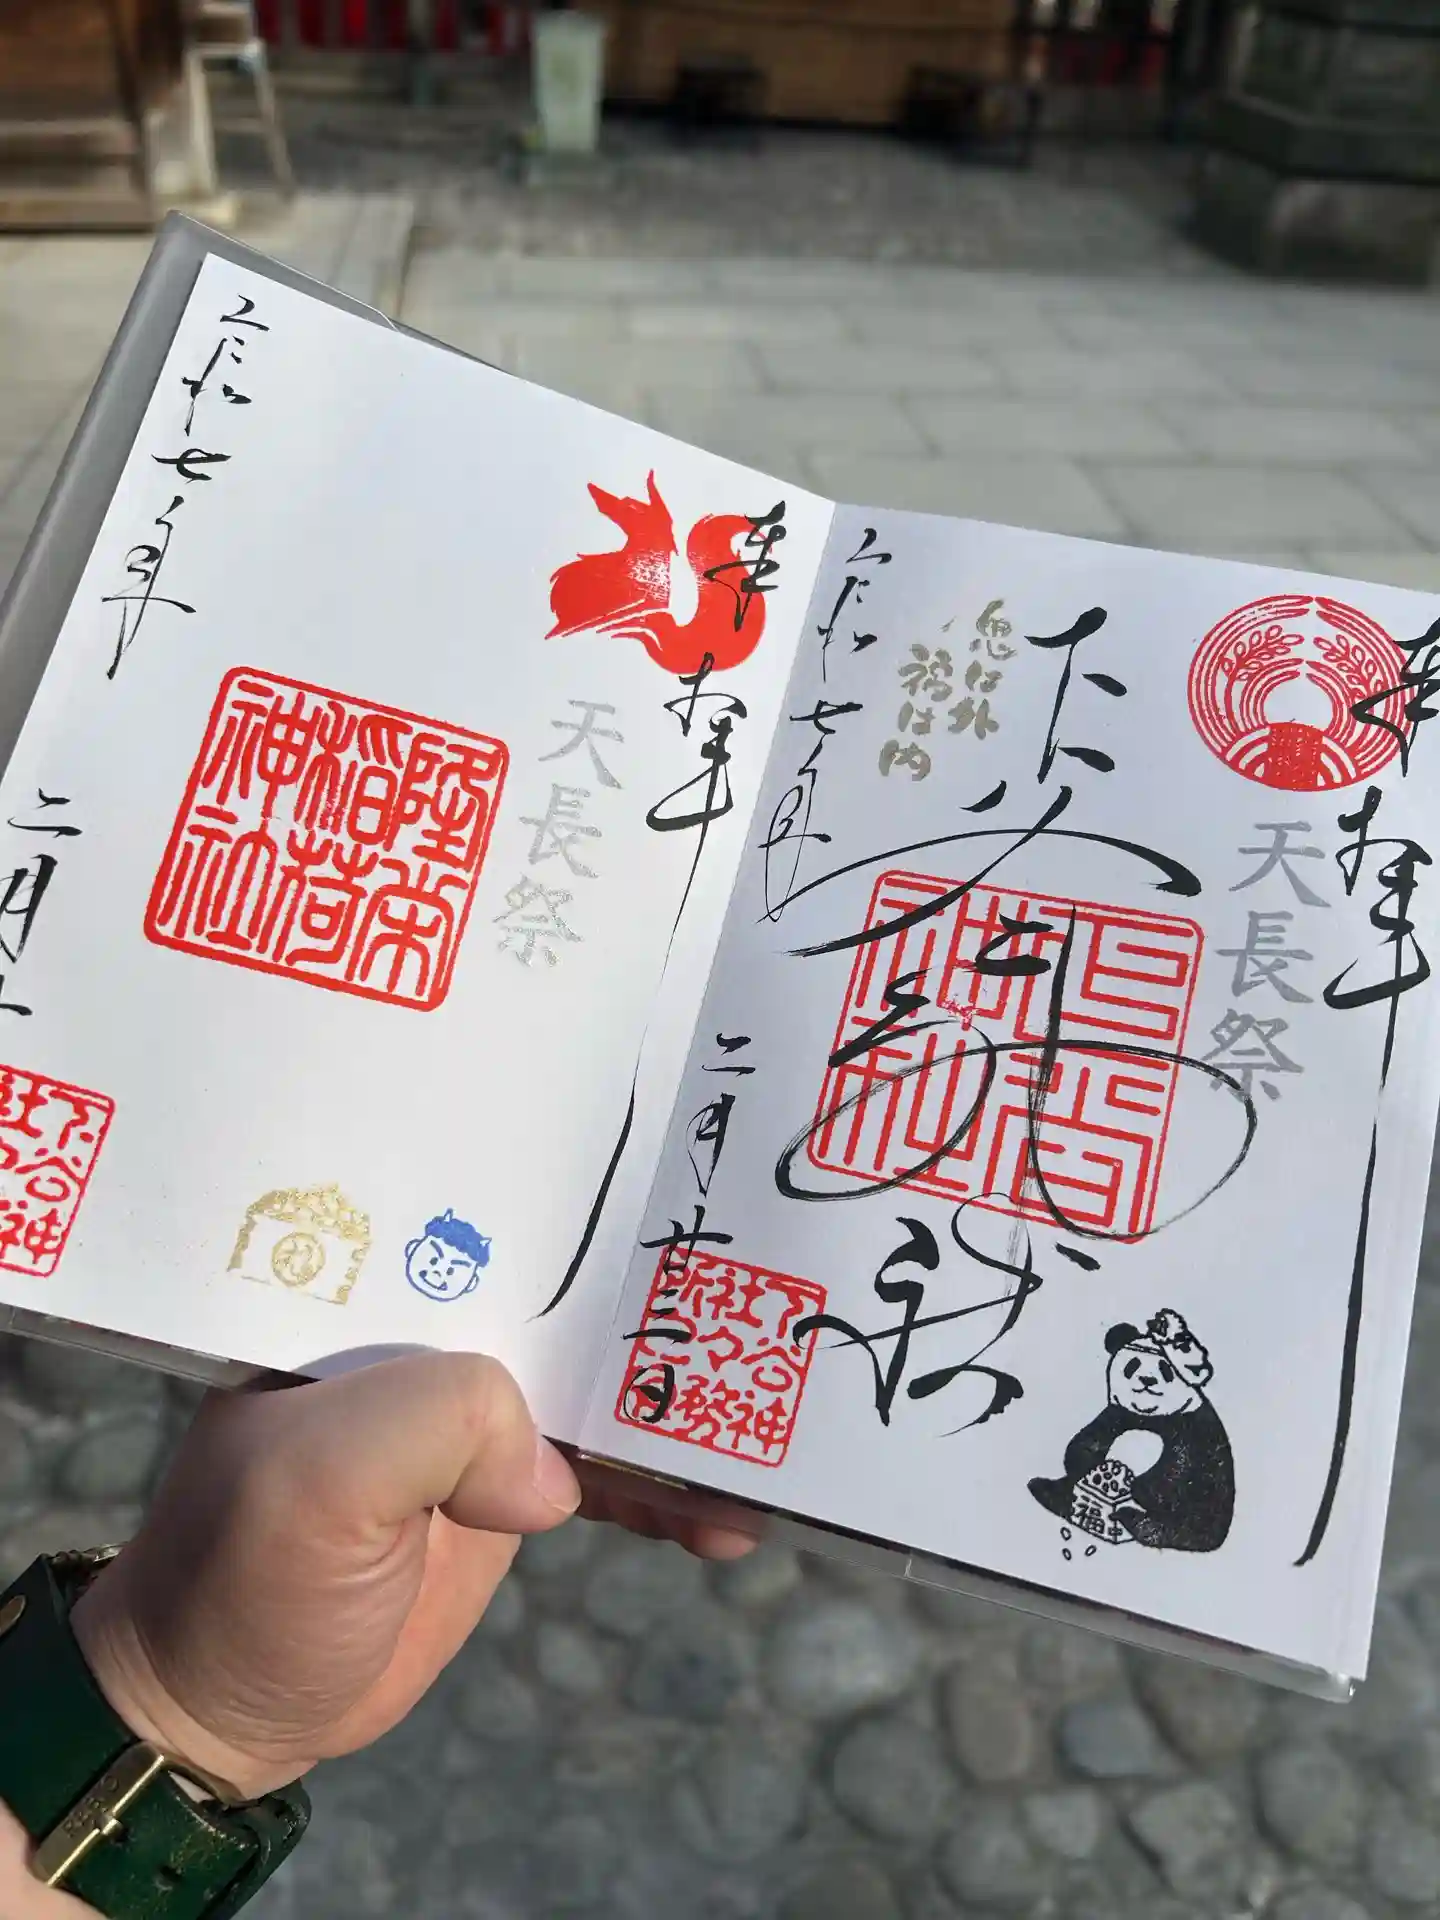 奉拝
天長祭
下谷神社
鬼は外
福は内
令和七年
二月廿三日
下谷神社
下谷神
社々務
所之印
福
奉拝
天長祭
隆栄
稲荷
神社
令和七年
二月
下谷神
社